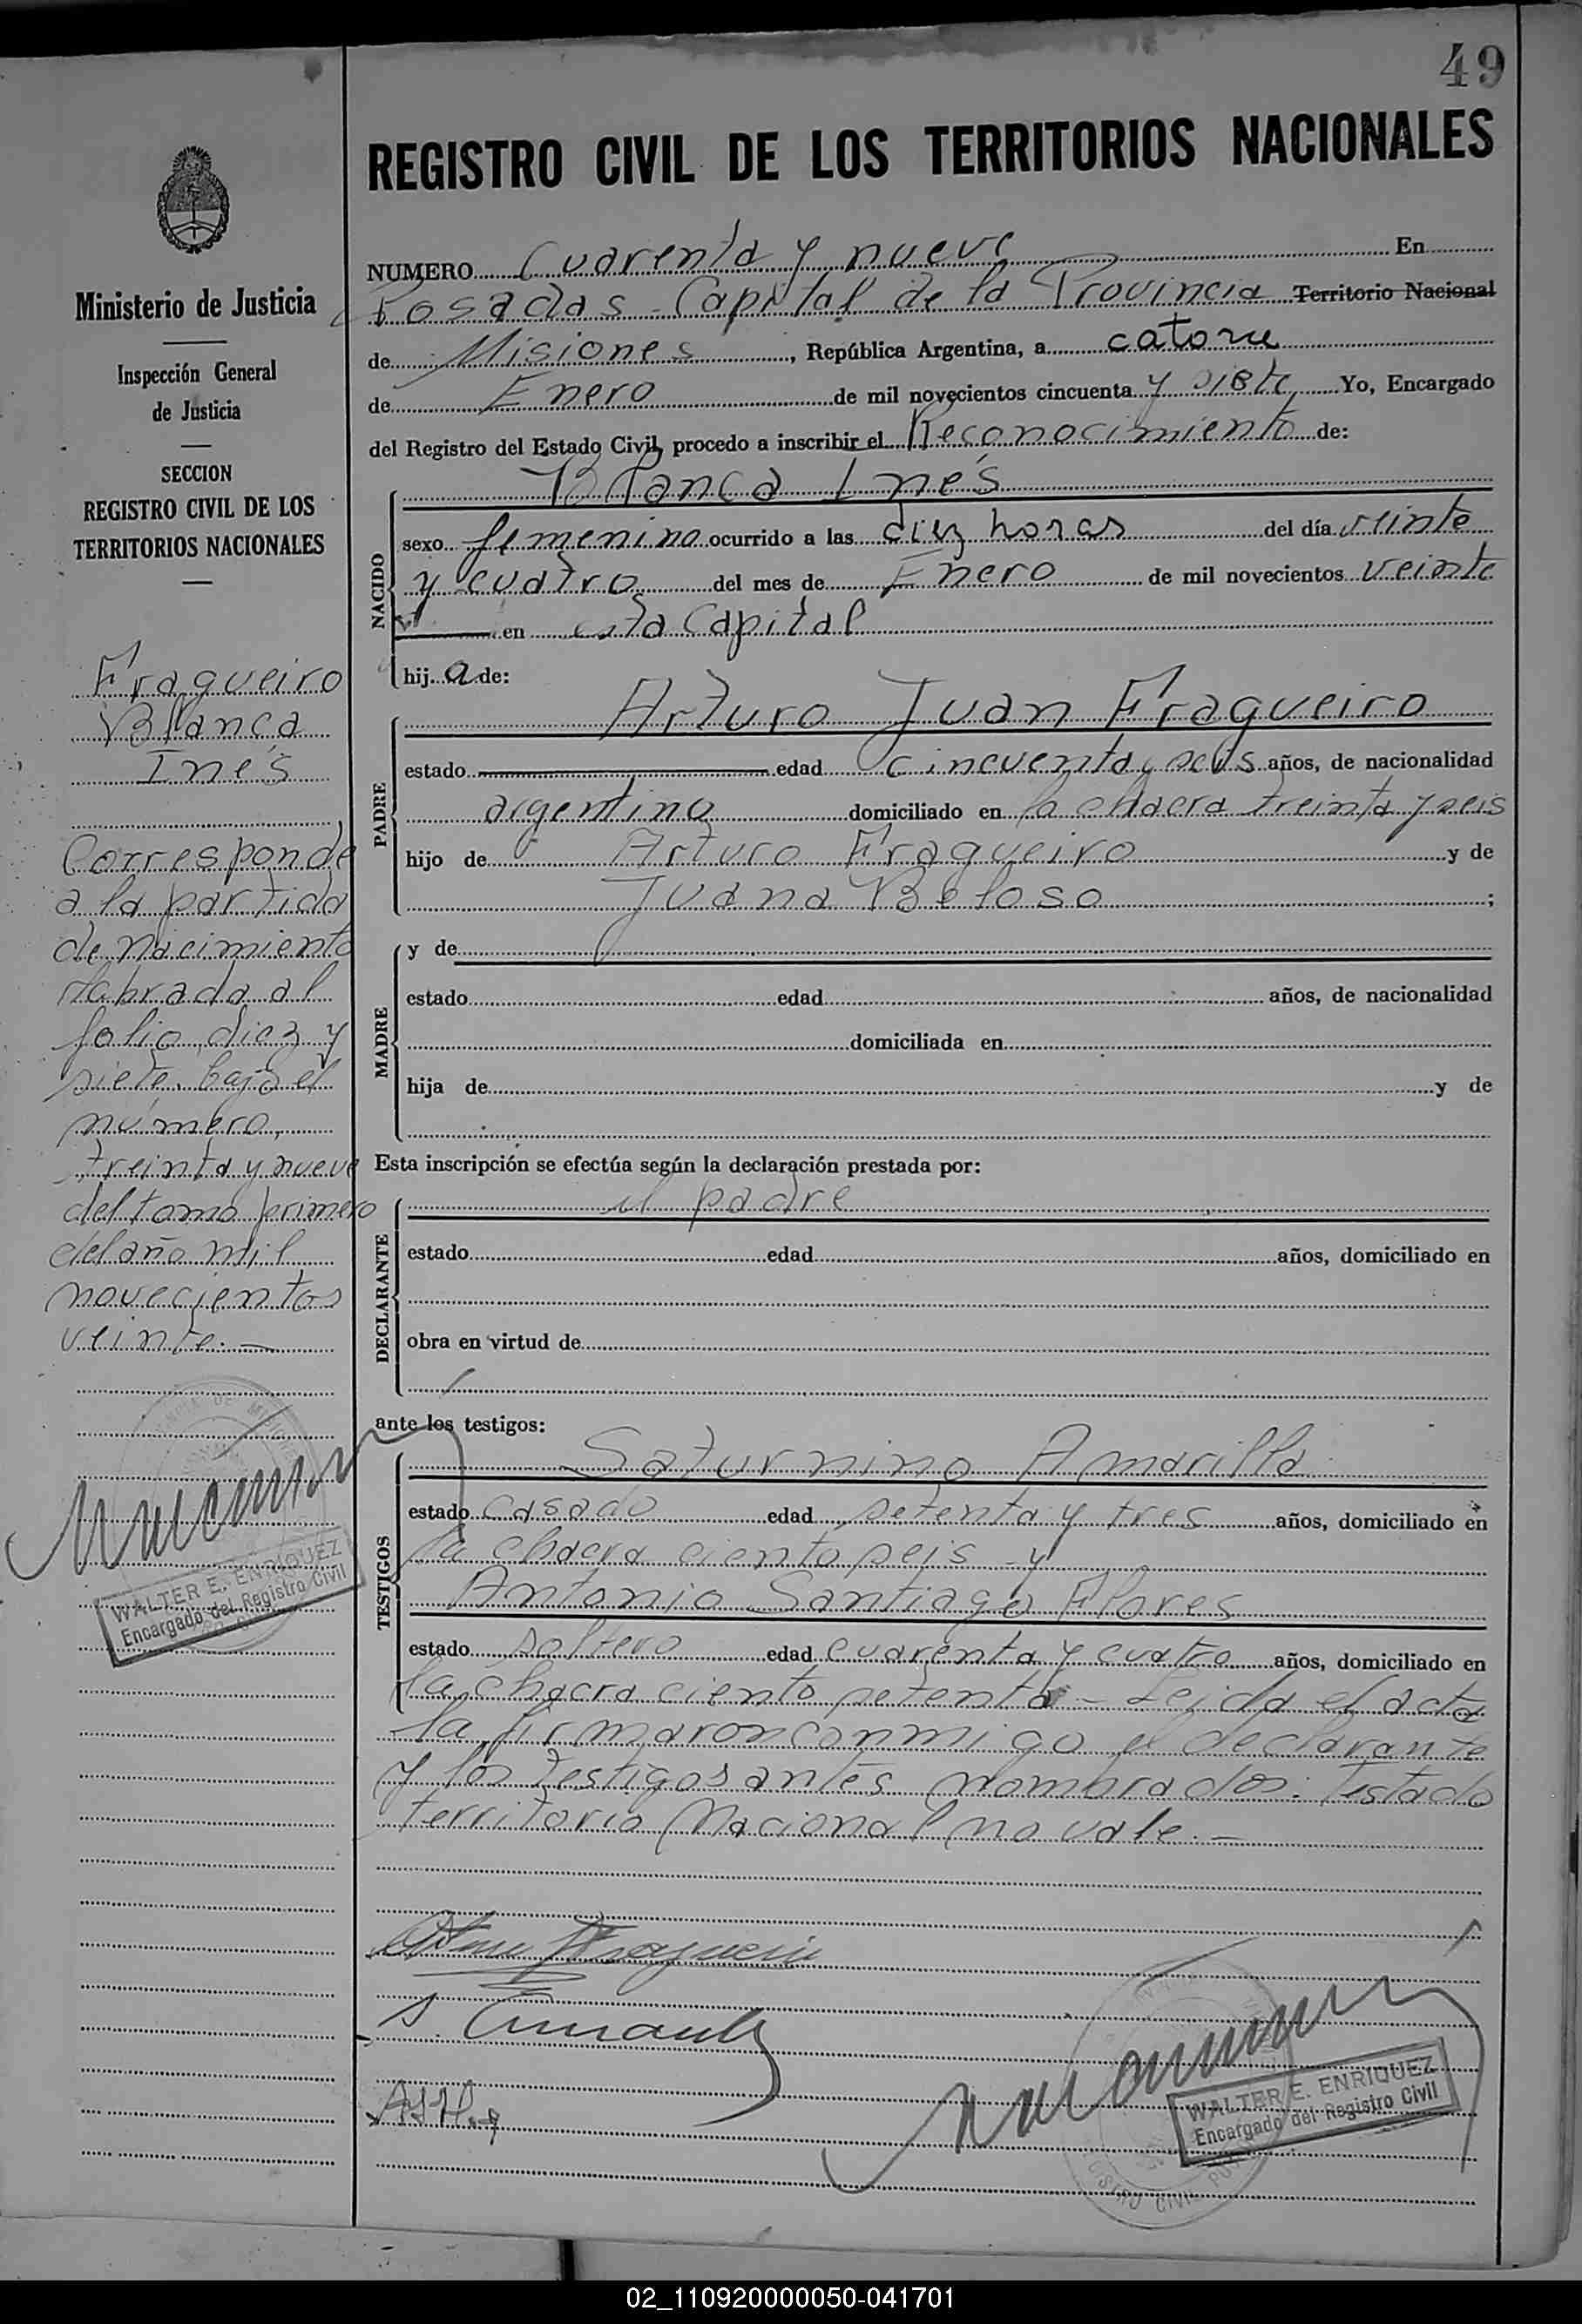 49
REGISTRO CIVIL DE LOS TERRITORIOS NACIONALES
NUMERO Cuarenta y nueve En
Posadas - Capital de la Provincia Territorio Nacional
de Misiones, República Argentina, a catorce
de Enero de mil novecientos cincuenta y siete Yo, Encargado
del Registro del Estado Civil, procedo a inscribir el Reconocimiento de:
Blanca Inés
NACIDO
sexo femenino ocurrido a las diez horas del día veinte
y cuatro del mes de Enero de mil novecientos veinte
en esta Capital
hija de:
Arturo Juan Fragueiro
PADRE
estado edad cincuenta y seis años, de nacionalidad
argentino domiciliado en la chacra treinta y seis
hijo de Arturo Fragueiro y de
Juana Beloso;
MADRE
y de
estado edad años, de nacionalidad
domiciliada en
hija de y de
Esta inscripción se efectúa según la declaración prestada por:
el padre
DECLARANTE
estado edad años, domiciliado en
obra en virtud de
ante los testigos:
Saturnino Amarilla
TESTIGOS
estado casado edad setenta y tres años, domiciliado en
la chacra ciento seis - y
Antonio Santiago Flores
estado soltero edad cuarenta y cuatro años, domiciliado en
la chacra ciento setenta - Leida el acta
la firmaron conmigo el declarante
y los testigos antes nombrados: Testado
territorio Nacional no vale. -
WALTER E. ENRIQUEZ
Encargado del Registro Civil
Ministerio de Justicia
Inspección General
de Justicia
SECCION
REGISTRO CIVIL DE LOS
TERRITORIOS NACIONALES
Fragueiro
Blanca
Inés
Corresponde
a la partida
de nacimiento
labrada al
folio diez y
siete bajo el
número
treinta y nueve
del tomo primero
del año mil
novecientos
veinte. -
WALTER E. ENRIQUEZ
Encargado del Registro Civil
02_110920000050-041701